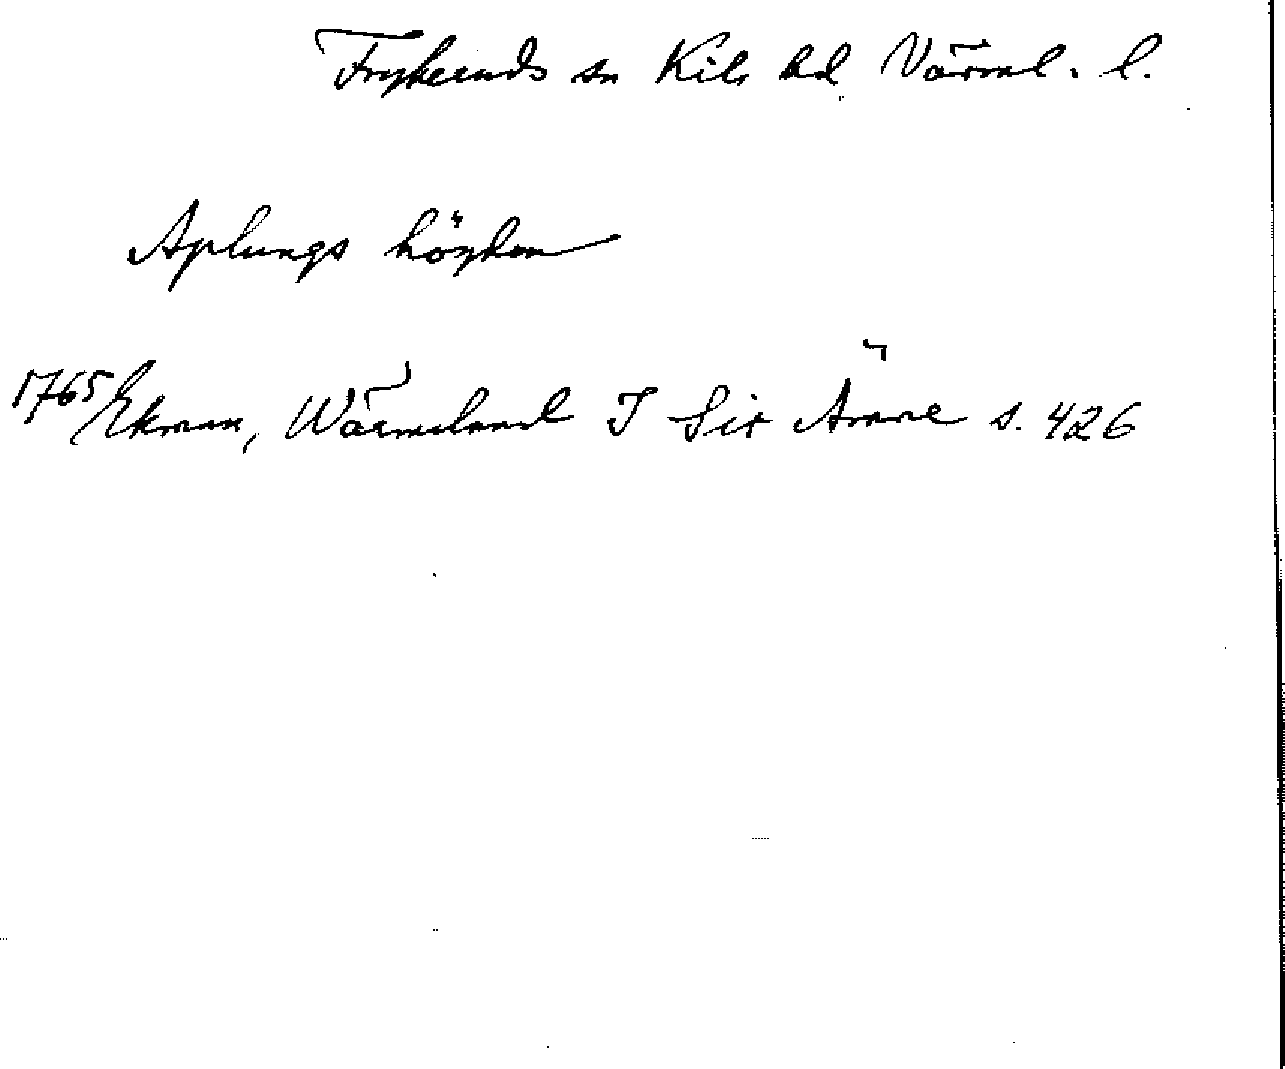 Frykeruds sn Kils hd Värml. l.
Aplungs höjden
1765 Ekman, Wärmeland I Sitt Ämne s. 426